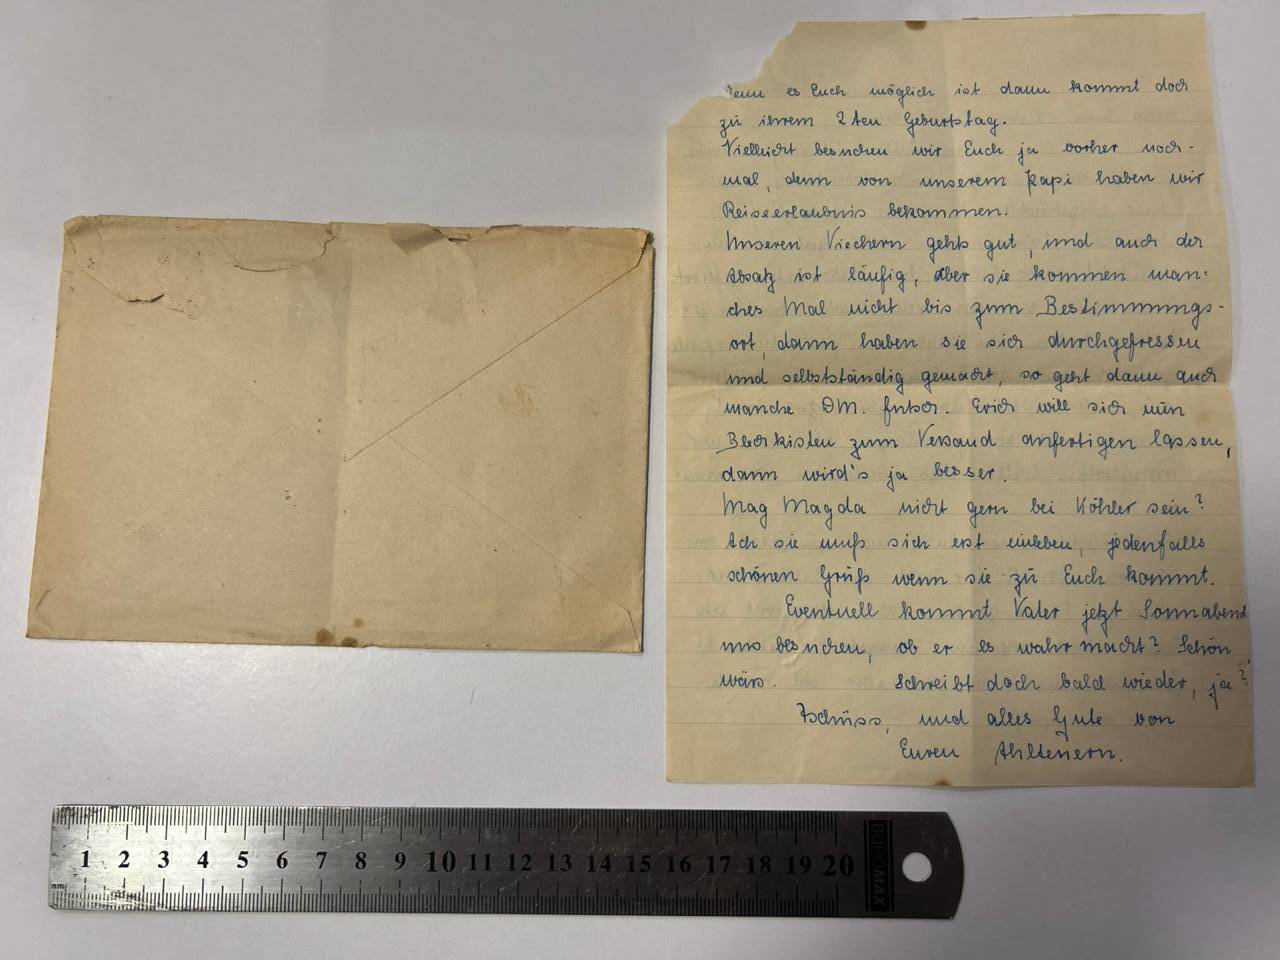 wenn es Euch möglich ist dann kommt doch
zu ihrem 2ten Geburtstag.
Vielleicht besuchen wir Euch ja vorher noch-
mal, denn von unserem Papi haben wir
Reiseerlaubnis bekommen.
Unseren Viechern gehts gut, und auch der
Absatz ist läufig, aber sie kommen man-
ches Mal nicht bis zum Bestimmungs-
ort, dann haben sie sich durchgefressen
und selbstständig gemacht, so geht dann auch
manche DM. futsch. Erich will sich nun
Blechkisten zum Versand anfertigen lassen,
dann wird's ja besser.
Mag Magda nicht gern bei Köhler sein?
Ach sie muß sich erst einleben, jedenfalls
schönen Gruß wenn sie zu Euch kommt.
Eventuell kommt Vater jetzt Sonnabend
uns besuchen, ob er es wahr macht? Schön
wärs. Schreibt doch bald wieder, ja?
Tschüss, und alles Gute von
Euren Ahltenern.
1 2 3 4 5 6 7 8 9 10 11 12 13 14 15 16 17 18 19 20
mm
BÜROMAX